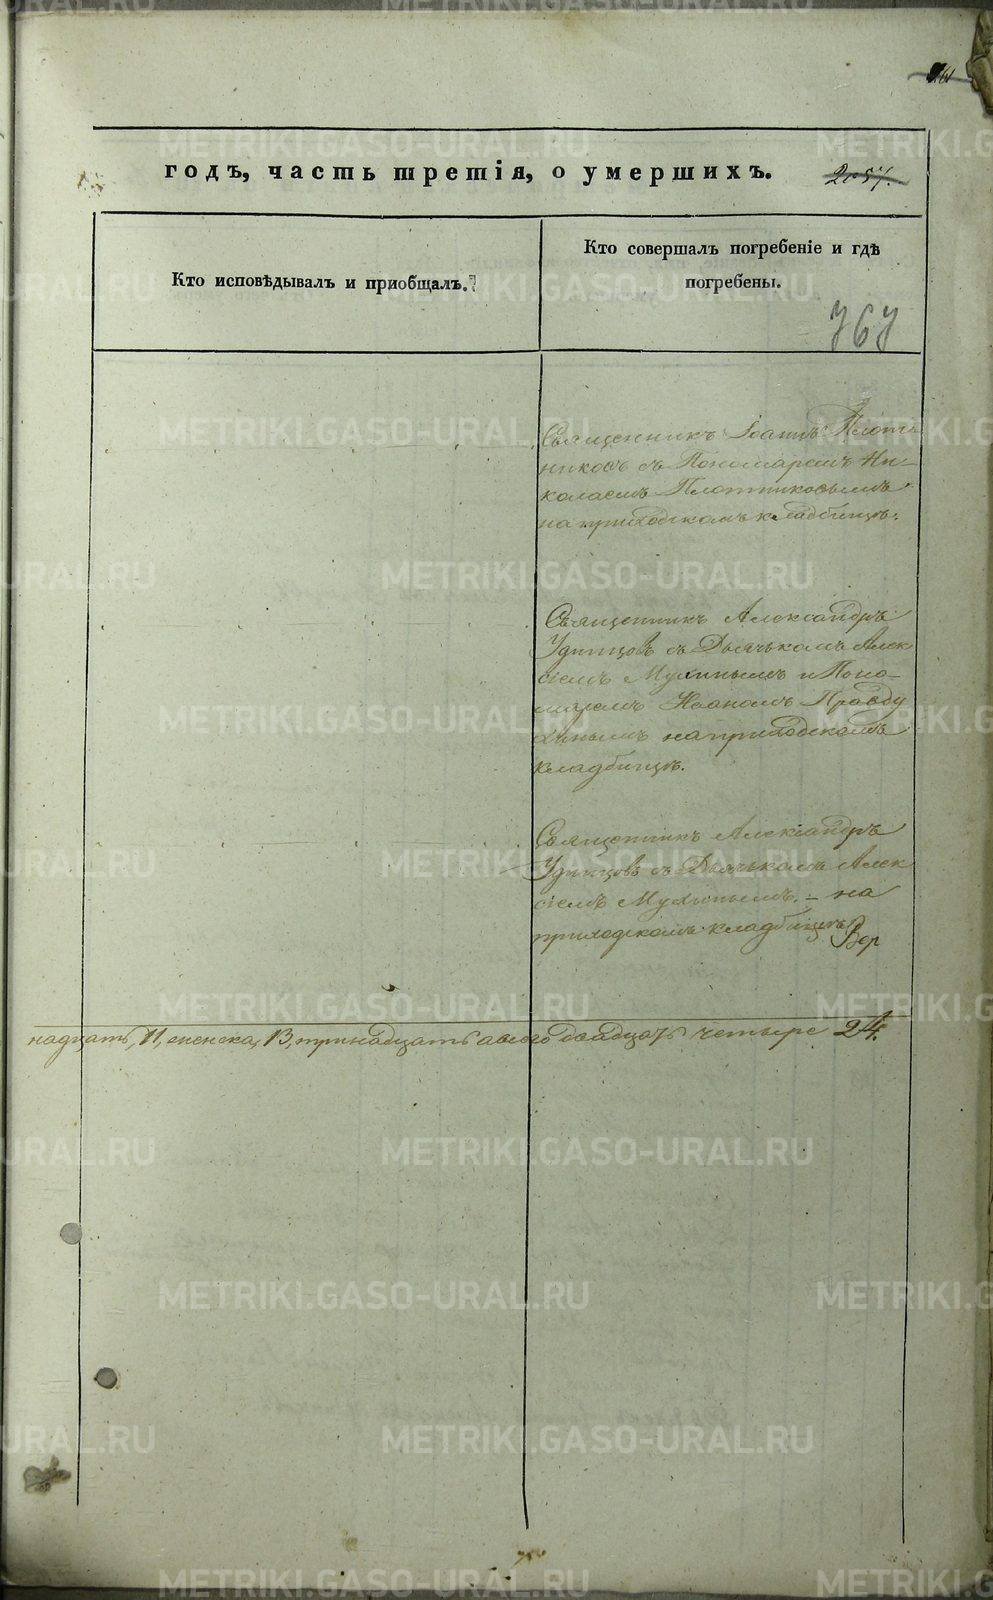 годъ, часть третія, о умершихъ.
2057.
Кто исповѣдывалъ и приобщалъ.
Кто совершалъ погребеніе и гдѣ
погребены.
767
Священникъ Іоаннъ Плот-
никовъ съ Пономаремъ Ни-
колаемъ Плотниковымъ
на приходскомъ кладбищѣ.
Священникъ Александръ
Удинцовъ съ Дьячькомъ Алек
сіемъ Мухинымъ и Поно-
маремъ Иваномъ Правду
хинымъ на приходскомъ
кладбищѣ.
Священникъ Александръ
Удинцовъ съ Дьячькомъ Алек
сіемъ Мухинымъ. - на
приходскомъ кладбищѣ
Вер
надцать, 11, женска, 13, тринадцать а всего двадцать четыре 24.
METRIKI.GASO-URAL.RU